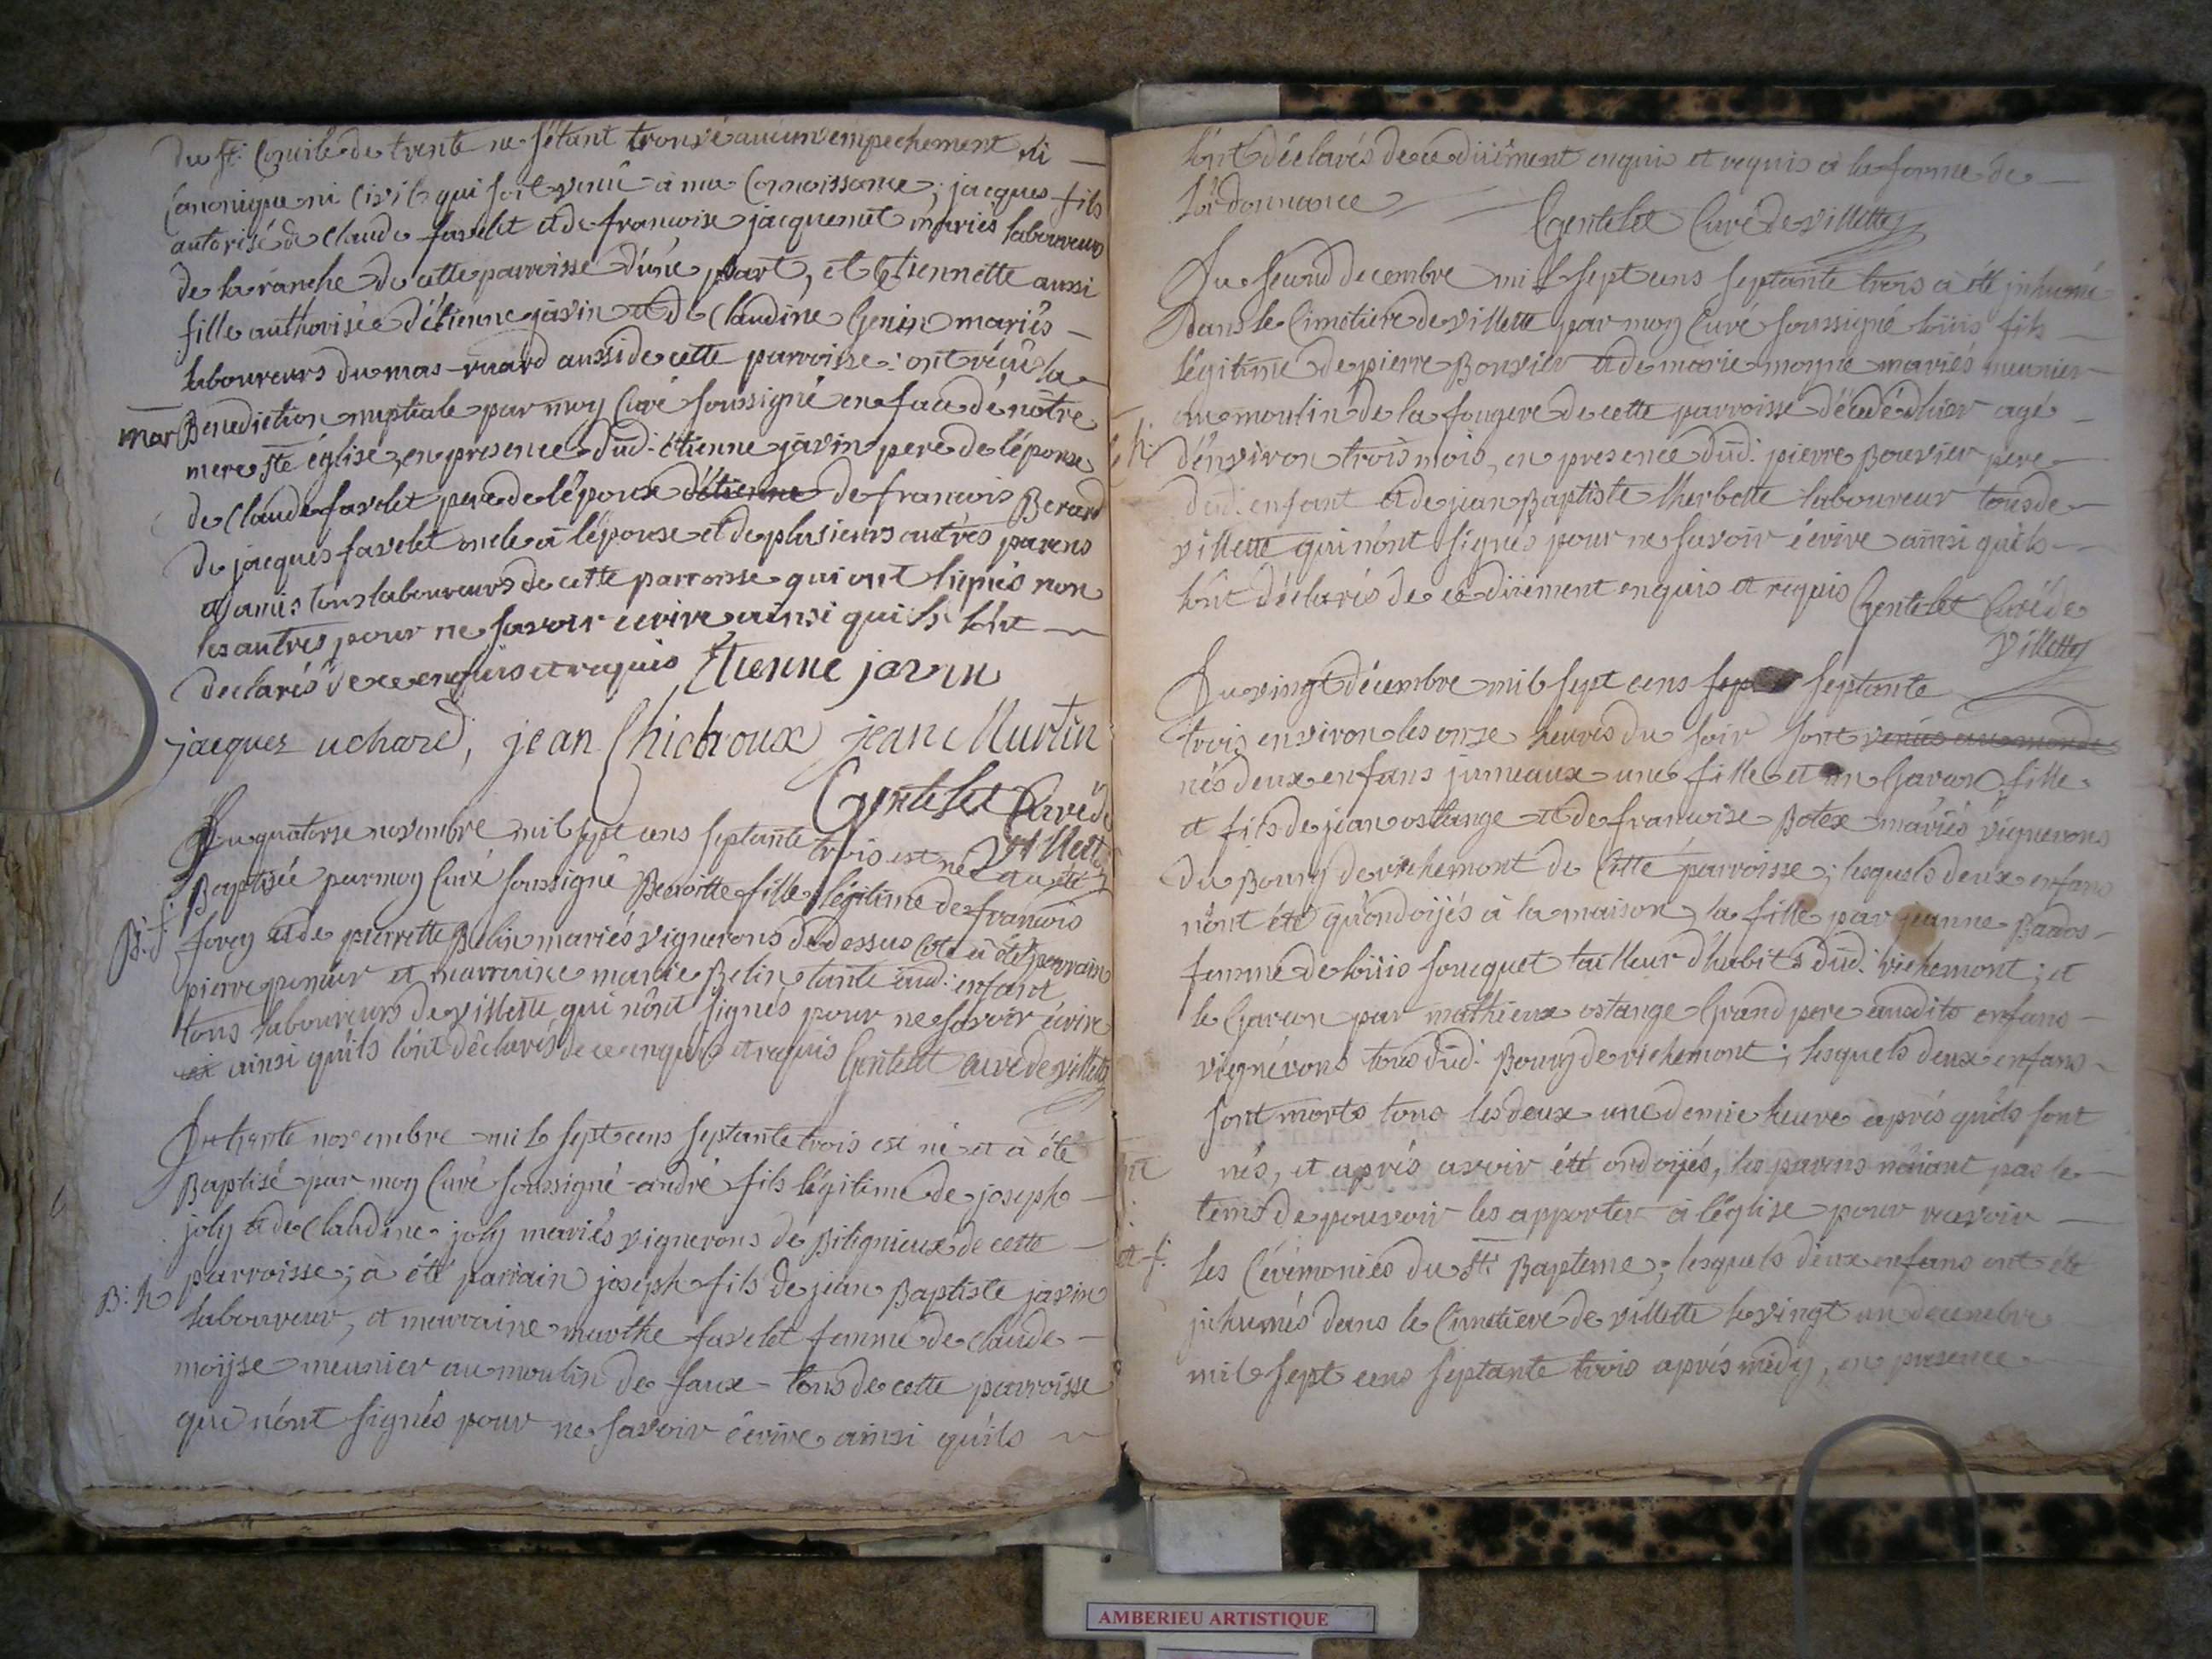 du st. Concile de trente ne s'étant trouvé aucun empechement ni
Canonique ni Civil qui soit venu à ma Connoissance; jacques fils
autorisé de Claude favelet et de francoise jacquemet mariés laboureurs
de la ranche de cette parroisse d'une part, et Etiennette aussi
fille authorisée d'étienne javin et de Claudine Genin mariés
laboureurs du mas-ruard aussi de cette parroisse: ont réçu la
mar Benediction nuptiale par moy Curé soussigné en face de nôtre
mere ste église, en presence dud. étienne javin pere de l'épouse
de Claude favelet pere de l'époux d'étienne de francois Berard
de jacques favelet oncle à l'épouse et de plusieurs autres parens
et amis tous laboureurs de cette parroisse qui ont signés non
les autres pour ne savoir écrire ainsi qu'ils l'ont
declarés de ce enquis et requis Etienne javin
jacques uchard, jean Chichoux jean Murtin
Gentelet Curé de
villette
Du quatorse novembre mil sept cens septante trois est née et a été
Baptisée par moy Curé soussigné Benoitte fille légitime de francois
B: f. forey et de pierrette Belin mariés vignerons du dessus Cote a été parrain
pierre et marraine marie Belin tante aud. enfant
tous laboureurs de villette qui n'ont signés pour ne savoir écrire
ainsi qu'ils l'ont déclarés de ce enquis et requis Gentelet curé de villette
Du trente novembre mil sept cens septante trois est né et à été
Baptisé par moy Curé soussigné andré fils légitime de joseph
joly et de Claudine joly mariés vignerons de Bilignieux de cette
parroisse; à été parrain joseph fils de jean Baptiste javin
B: h laboureur, et marraine marthe favelet femme de claude
moyse meunier au moulin de faux tous de cette parroisse
qui n'ont signés pour ne savoir écrire ainsi qu'ils
l'ont déclarés de ce düement enquis et requis à la forme de
l'ordonnance
Gentelet Curé de villette
Du second decembre mil sept cens septante trois a été inhumé
Dans le Cimetiere de villette par moy Curé soussigné loüis fils
légitime de pierre Bouvier et de marie moyne mariés meunier
au moulin de la fougere de cette parroisse décédé d'hier agé
h: d'environ trois mois, en presence dud. pierre Bouvier pere
dud. enfant et de jean Baptiste lherbette laboureur tous de
villette qui n'ont signés pour ne savoir écrire ainsi qu'ils
l'ont déclarés de ce düement enquis et requis Gentelet Curé de
villette
Du vingt décembre mil sept cens sep septante
trois environ les onze heures du soir sont venus au monde
nés deux enfans jumeaux une fille et un Garcon fille
et fils de jean ostange et de francoise Botex mariés vignerons
du Bourg de richemont de Cette parroisse; lesquels deux enfans
n'ont été qu'ondoijés à la maison, la fille par jeanne Bados
femme de loüis foucquet tailleur d'habits dud. richemont; et
le Garcon par mathieux ostange Grand pere ausdits enfans
vignérons tous dud. Bourg de richemont; lesquels deux enfans
sont morts tous les deux une demie heure aprés qu'ils sont
nés, et aprés avoir été ondoijés, les parens n'aiant pas le
tems de pouvoir les apporter à l'église pour recevoir
et f. les Cérémonies du st. Bapteme; lesquels deux enfans ont été
inhumés dans le Cimetiere de villette le vingt un decembre
mil sept cens septante trois aprés midy, en presence
AMBERIEU ARTISTIQUE